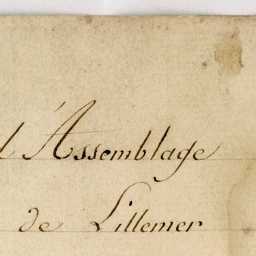 d'Assemblage
de Lillemer